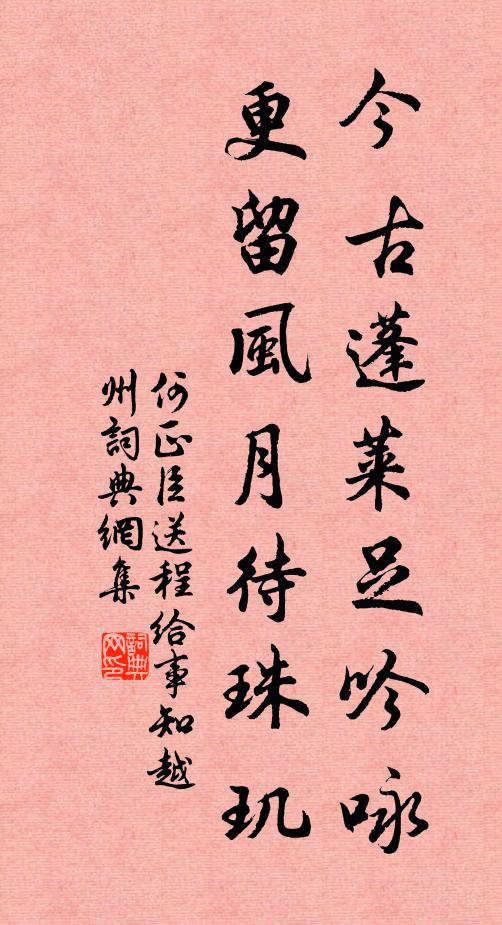 今古蓬萊足吟咏
更留風月待珠玑
何正臣送程给事知越
州詞典網集
詞典
网印